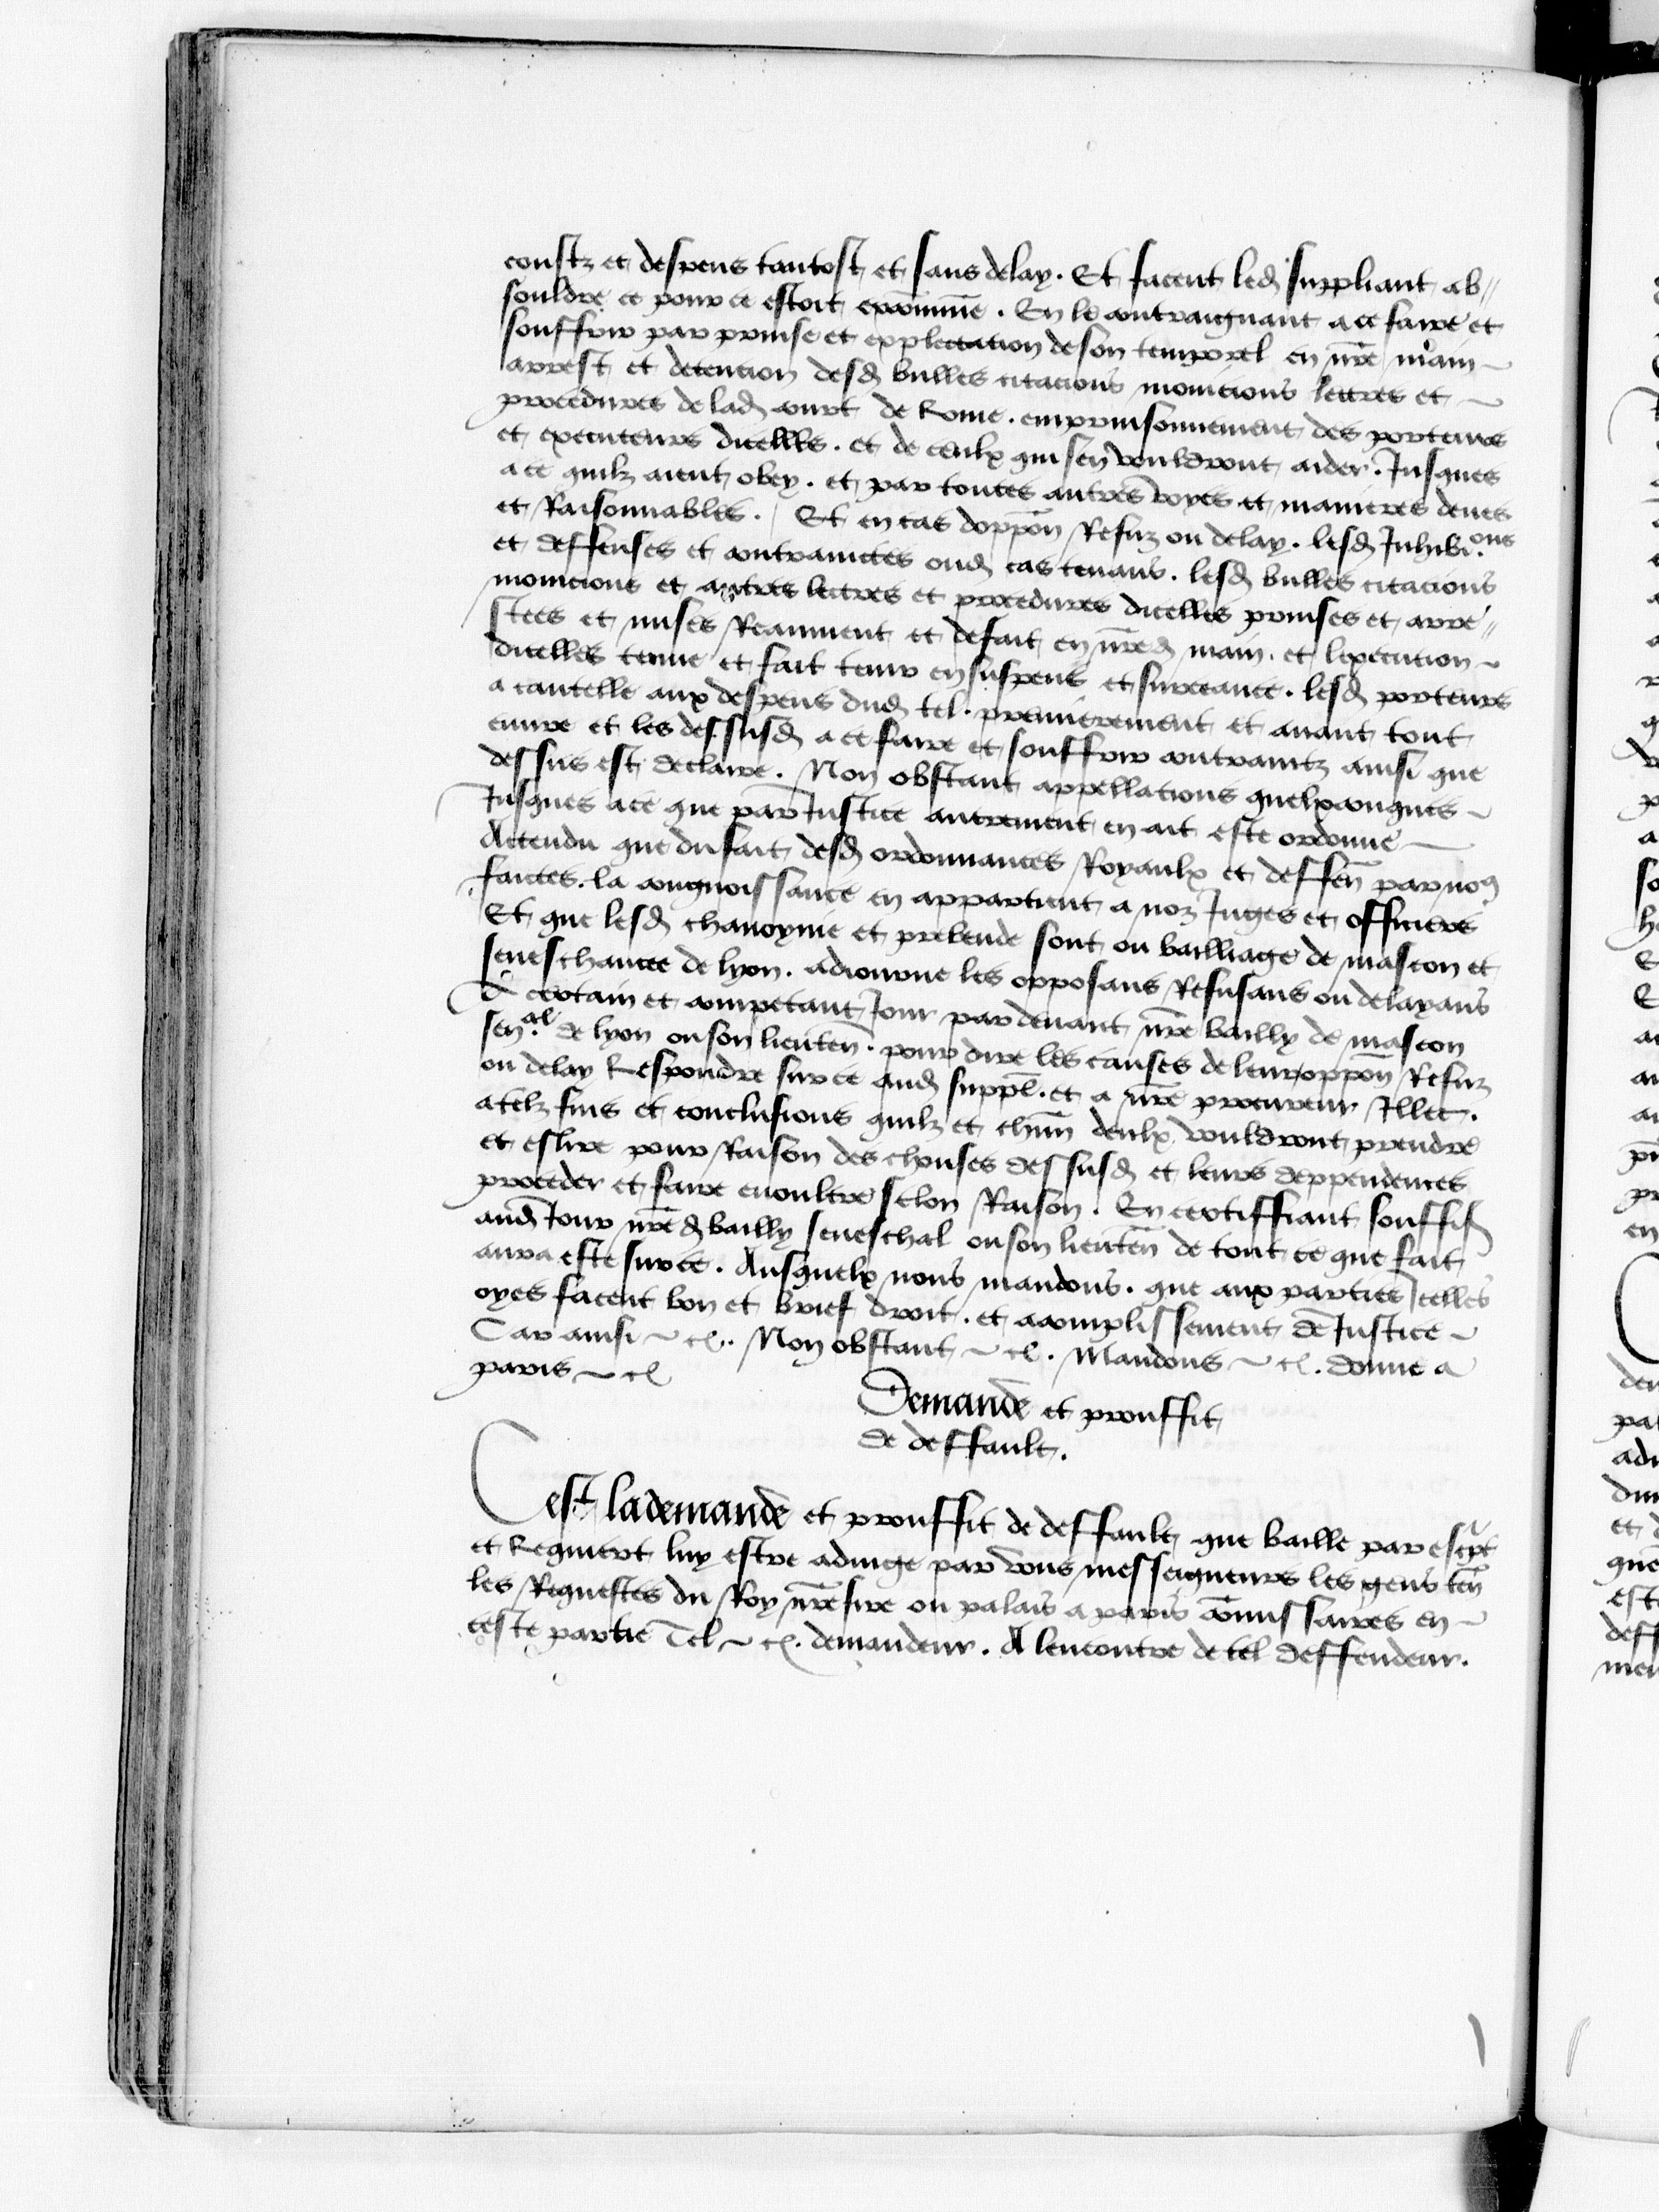 coustz et despens tantost et sans delay. Et facent led suppliant ab//
souldre ce pour ce estoit excōmunie. En le contraignant a ce faire et
souffrir par prinse et expplectation de son temporel en nr̄e main
arrest et detencion desd bulles citacions monicions lettres et
procedures de lad court de Rome. emprinsonnement des porteurs
et executeurs dicelles. et de ceulx qui sen vouldront aider. Jusques
a ce quilz aient obey. et par toutes autres voyes et manieres deues
et Raisonnables. Et en cas doppōn Refuz ou delay. lesd Inhibi.ons
et deffenses et contrainctes oud cas tenans. lesd bulles citacions
monicions et autres lectres et procedures dicelles prinses et arre//
stees et mises Reaument et de fait en nr̄ed main. et lexecution
dicelles tenue et fait tenir en suspens et surceance. lesd porteurs
a cautelle aux despens dud tel. premierement et auant tout
euure et les dessusd a ce faire et souffrir contrainctz ainsi que
dessus est declaire. Non obstant appellacions quelxconques
Jusques a ce que par Justice autrement en ait este ordonne
Attendu que du fait desd ordonnances Royaulx et deffen̄ par nous
faictes. la congnoissance en appartient a noz Juges et officiers
Et que lesd chanoynie et prebende sont ou bailliage de mascon et
seneschaucee de lyon. adiourne les opposans Refusans ou delayans
A certain et competant Jour pardeuant nr̄e bailly de mascon
sen.al de lyon ou son lieuten̄. pour dire les causes de leur oppōn Refuz
ou delay Respondre sur ce aud supp̄l. et a nr̄e procureur Illec.
a telz fins et conclusions quilz et chūn deulx vouldront prendre
et eslire pour Raison des chouses dessusd et leurs deppendences
proceder et faire en oultre selon Raison. En certiffiant souffis
aud Jour nr̄ed bailly seneschal ou son lieuten̄ de tout ce que fait
aura este sur ce. Ausquelx nous mandons. que aux parties Icelles
oyes facent bon et brief droit. et acomplissement de Justice
Car ainsi ~ cͤ. Non obstant ~ cͤ. Mandons ~ cͤ. donne a
paris ~ cͤ
Demande et prouffit
de deffault.
Cest la demande et prouffit de deffault que baille par escpt
et Requiert luy estre adiuge par vous messeigneurs les gens ten̄
les Requestes du Roy nr̄e sire ou palais a paris cōmissaires en
ceste partie Tel ~ cͤ. demandeur. A lencontre de tel deffendeur.